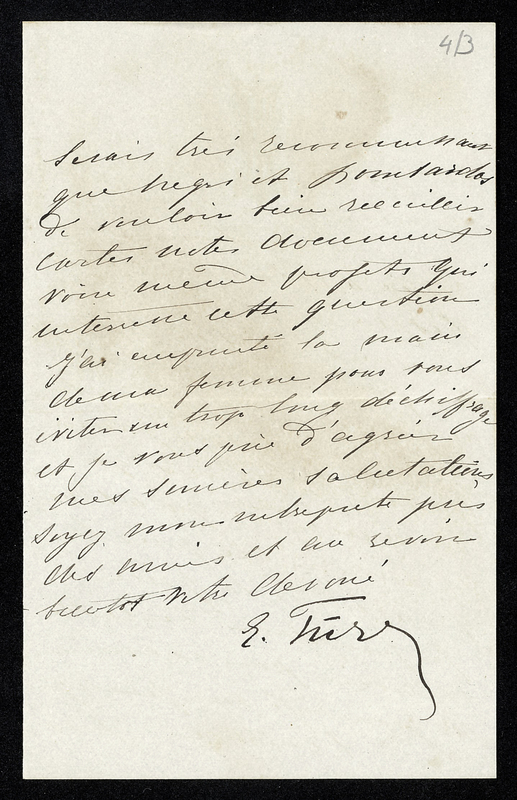 4/3
Serais très reconnaissant
que Negri et Lombardos
de vouloir bien recueillir
cartes notes document
voire même projets qui
interesse cette question
J'ai emprunté la main
de ma femme pour vous
éviter un trop long déchiffrage
et je vous prie d'agréer
mes sincères salutations
soyez mon interprete près
des amis et au revoir
bientot votre devoué
E. Türr